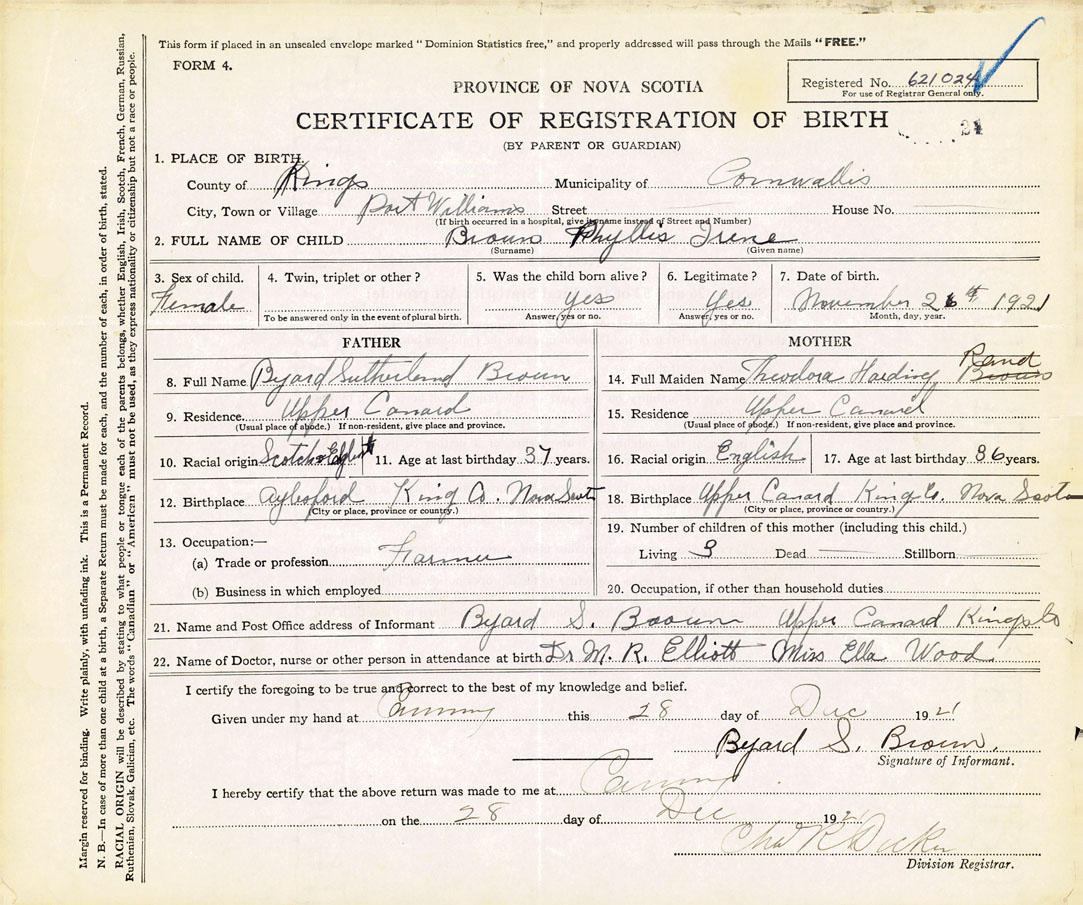 This form if placed in an unsealed envelope marked "Dominion Statistics free," and properly addressed will pass through the Mails "FREE."
FORM 4.
Registered No. 621024
For use of Registrar General only.
PROVINCE OF NOVA SCOTIA
CERTIFICATE OF REGISTRATION OF BIRTH
(BY PARENT OR GUARDIAN)
1. PLACE OF BIRTH.
County of Kings Municipality of Cornwallis
City, Town or Village Port Williams Street House No.
(If birth occurred in a hospital, give its name instead of Street and Number)
2. FULL NAME OF CHILD Brown Phyllis Irene
(Surname) (Given name)
3. Sex of child. 4. Twin, triplet or other? 5. Was the child born alive? 6. Legitimate? 7. Date of birth.
Female Yes Yes November 26th 1921
To be answered only in the event of plural birth. Answer, yes or no. Answer, yes or no. Month, day, year.
FATHER
8. Full Name Byard Sutherland Brown
9. Residence. Upper Canard
(Usual place of abode.) If non-resident, give place and province.
10. Racial origin Scotch & English 11. Age at last birthday 37 years.
12. Birthplace Aylesford King Co. Nova Scoti
(City or place, province or country.)
13. Occupation:—
(a) Trade or profession Farmer
(b) Business in which employed
MOTHER
14. Full Maiden Name Theodora Harding Brown Rand
15. Residence Upper Canard
(Usual place of abode.) If non-resident, give place and province.
16. Racial origin English 17. Age at last birthday 36 years.
18. Birthplace Upper Canard King Co. Nova Scotia
(City or place, province or country.)
19. Number of children of this mother (including this child.)
Living 3 Dead Stillborn
20. Occupation, if other than household duties
21. Name and Post Office address of Informant Byard S. Brown Upper Canard Kings Co
22. Name of Doctor, nurse or other person in attendance at birth Dr M. R. Elliott Miss Ella Wood
I certify the foregoing to be true and correct to the best of my knowledge and belief.
Given under my hand at Canning this 28 day of Dec 1921
Byard S. Brown.
Signature of Informant.
I hereby certify that the above return was made to me at Canning
on the 28 day of Dec 1921
Division Registrar.
Margin reserved for binding. Write plainly, with unfading ink. This is a Permanent Record.
N. B.—In case of more than one child at a birth, a Separate Return must be made for each, and the number of each, in order of birth, stated.
RACIAL ORIGIN will be described by stating to what people or tongue each of the parents belongs, whether English, Irish, Scotch, French, German, Russian,
Ruthenian, Slovak, Galician, etc. The words "Canadian" or "American" must not be used, as they express nationality or citizenship but not a race or people.